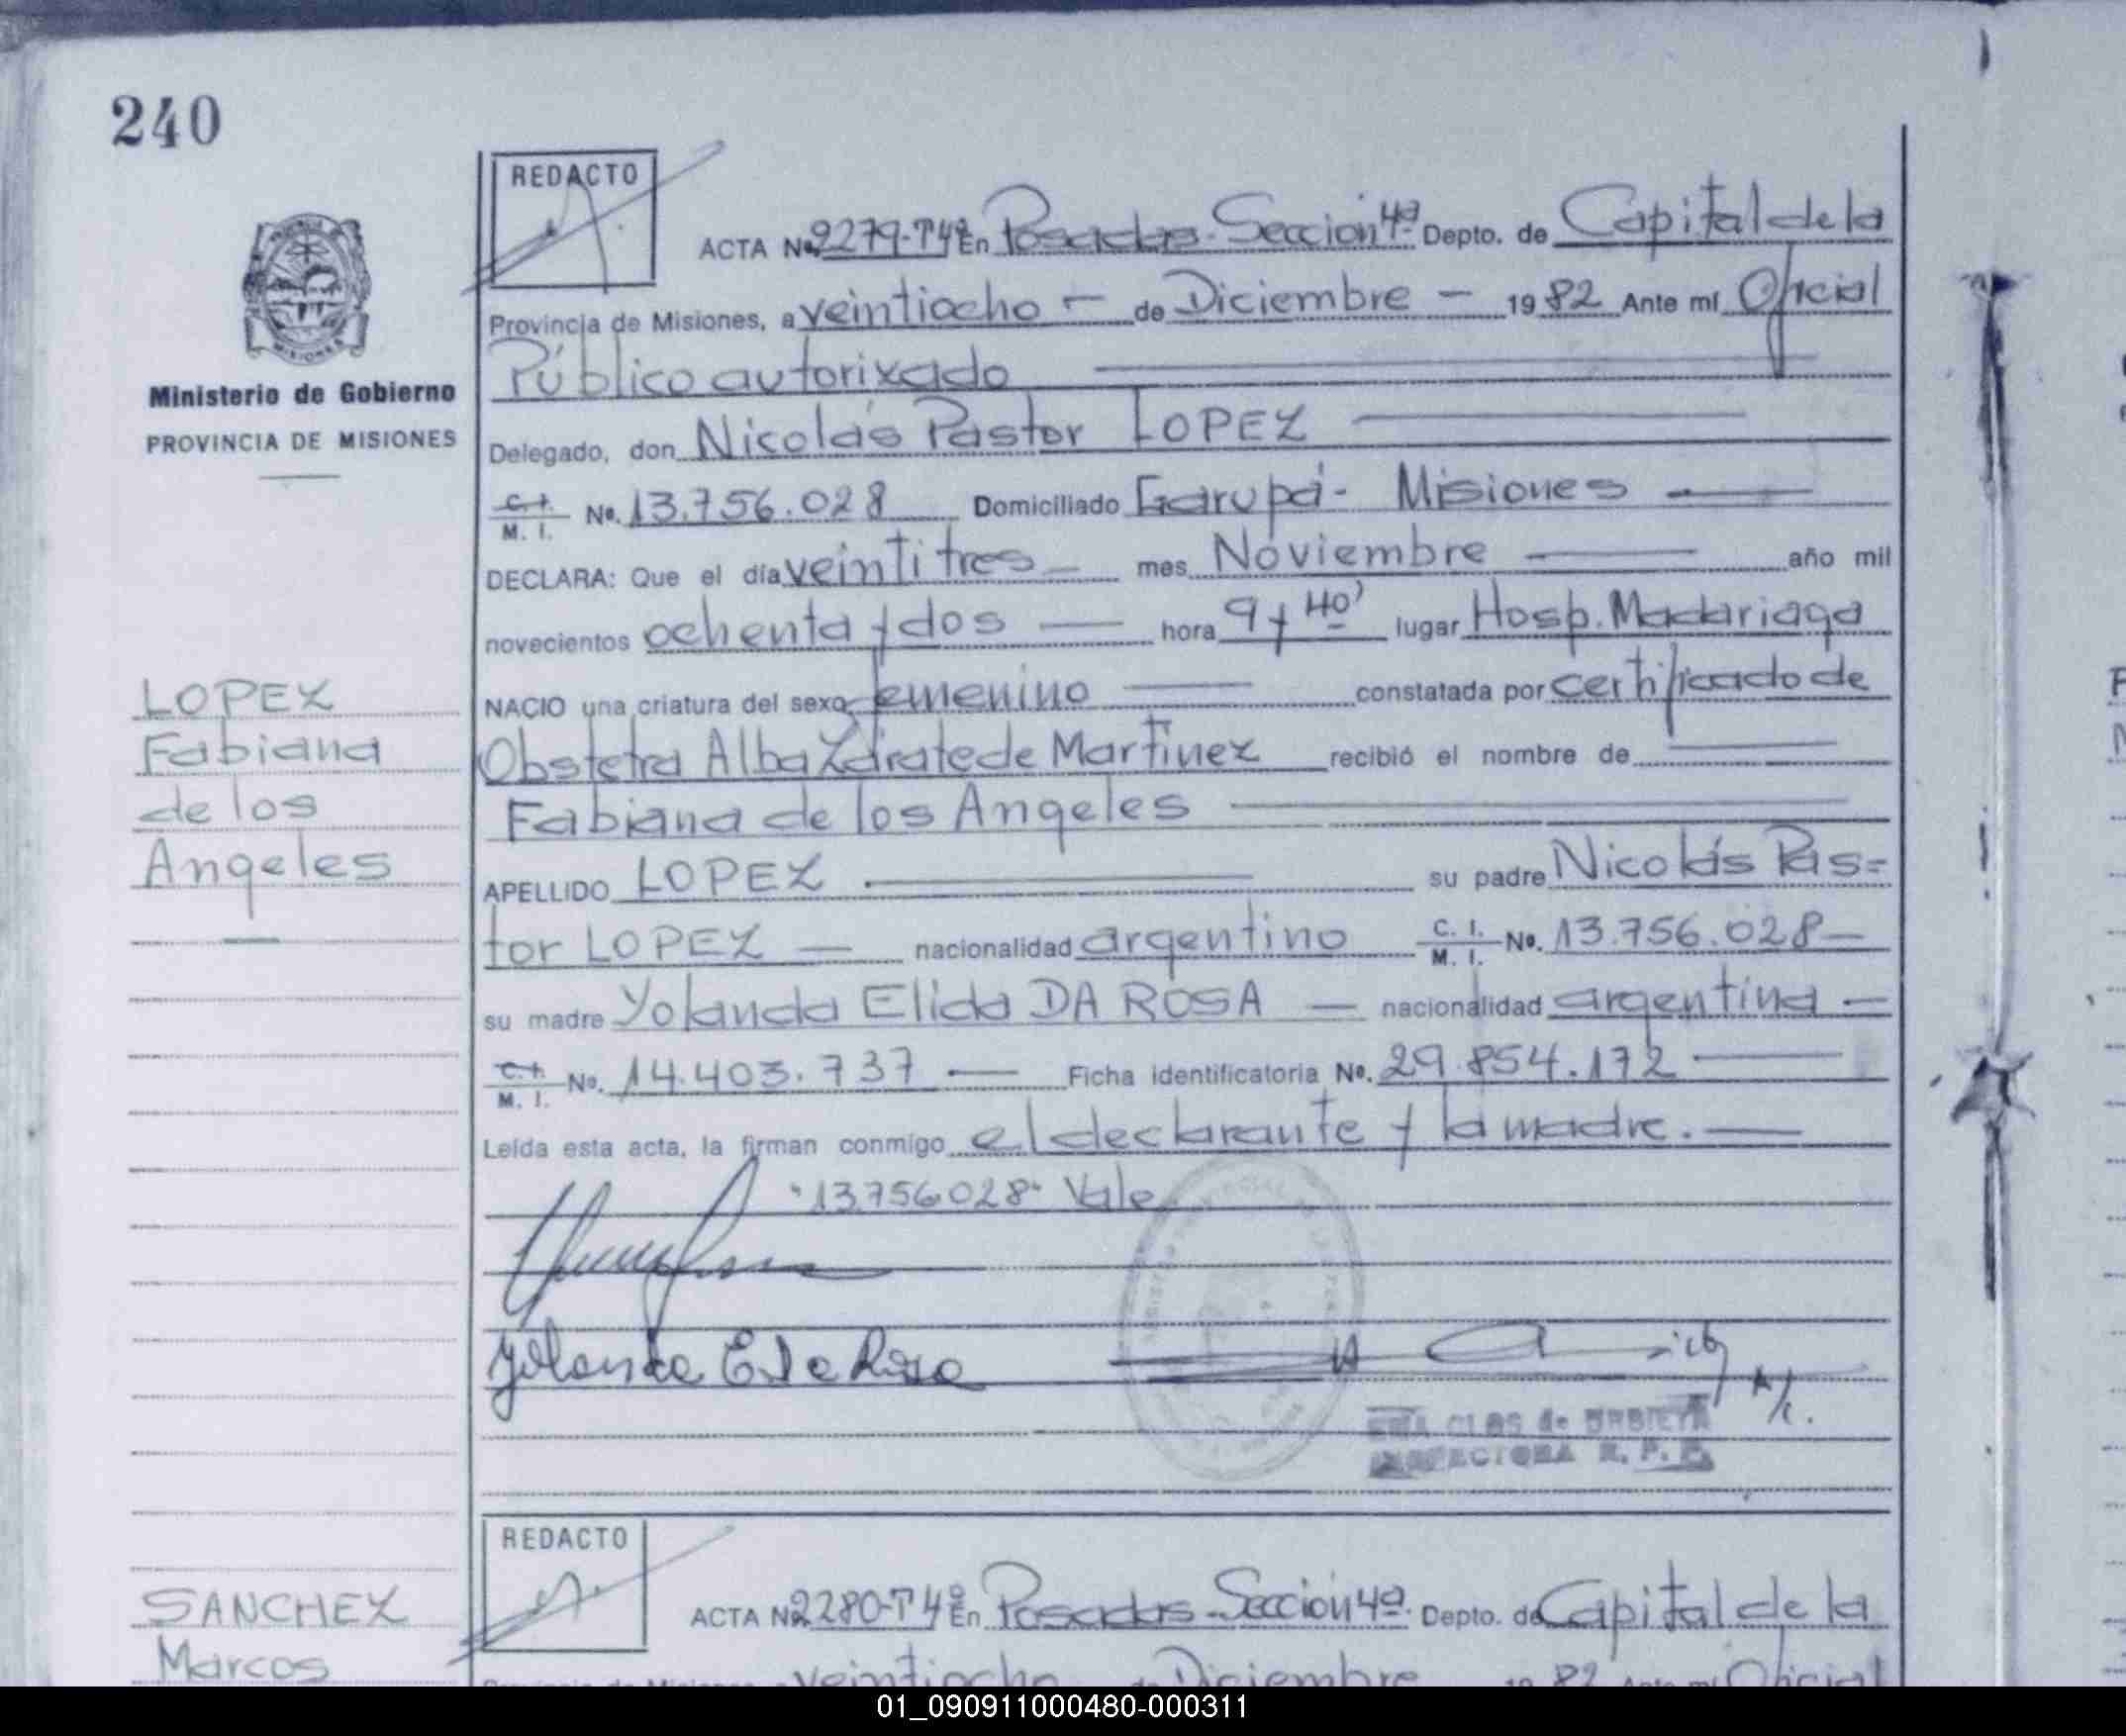 240
REDACTO
ACTA Nº 2279-T4º En Posadas-Sección 4ª Depto. de Capital de la
Provincia de Misiones, a veintiocho — de Diciembre — 1982 Ante mí Oficial
Público autorizado
Ministerio de Gobierno
PROVINCIA DE MISIONES
Delegado, don Nicolás Pastor LOPEZ
C. I. M. I. Nº. 13.756.028 Domiciliado Garupá - Misiones
DECLARA: Que el día veintitres — mes Noviembre año mil
novecientos ochenta y dos — hora 9 y 40' lugar Hosp. Madariaga
NACIO una criatura del sexo femenino constatada por certificado de
Obstetra Alba Zárate de Martinez recibió el nombre de
Fabiana de los Angeles
LOPEZ
Fabiana
de los
Angeles
APELLIDO LOPEZ su padre Nicolás Pas=
tor LOPEZ — nacionalidad argentino C. I. M. I. Nº. 13.756.028—
su madre Yolanda Elida DA ROSA — nacionalidad argentina —
C. I. M. I. Nº. 14.403.737 — Ficha identificatoria Nº. 29.854.172
Leída esta acta, la firman conmigo el declarante y la madre. —
"13.756.028" Vale
Yolanda E Da Rosa
INSPECTORA R. P. P.
REDACTO
ACTA Nº 2280-T4º En Posadas-Sección 4ª Depto. de Capital de la
SANCHEZ
Marcos
Provincia de Misiones, a veintiocho de Diciembre 1982 Ante mí Oficial
01_090911000480-000311